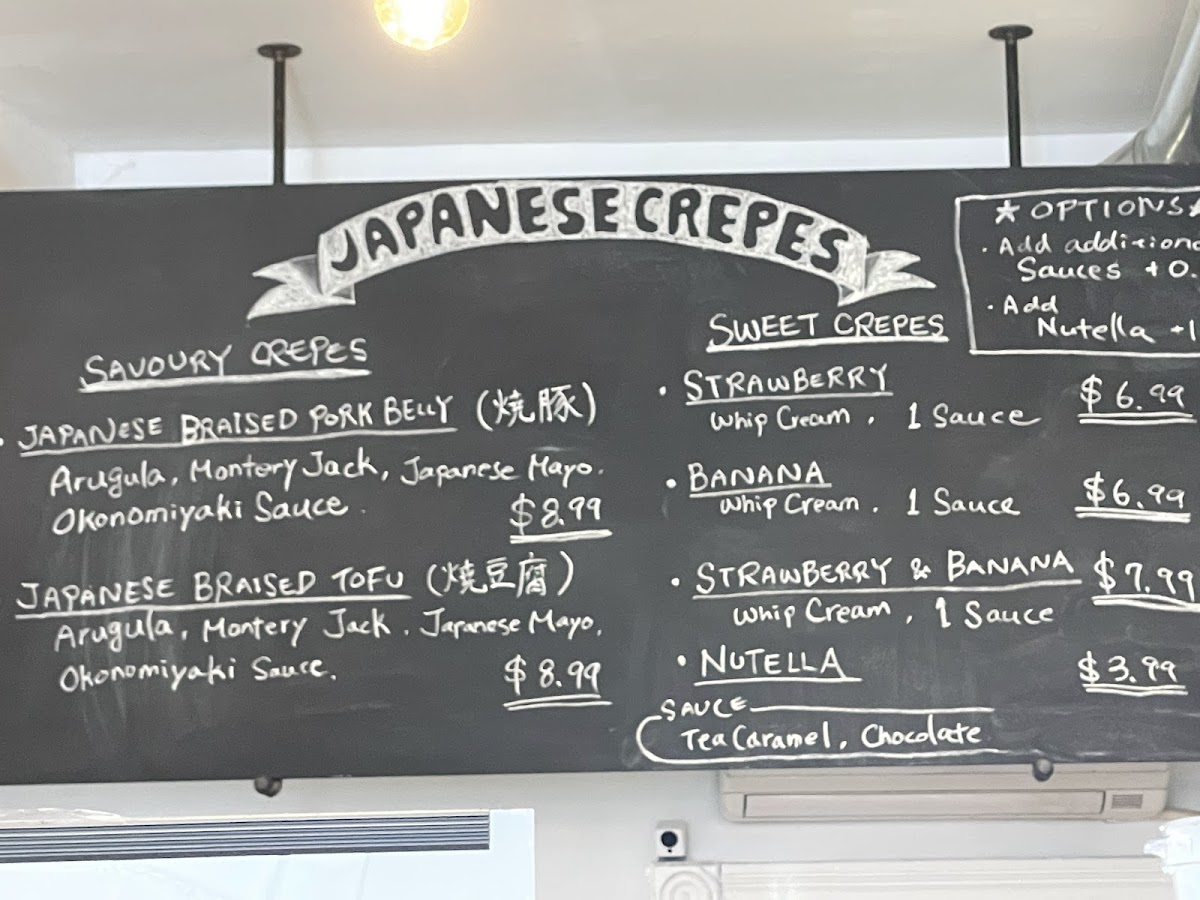 JAPANESE CREPES
SAVOURY CREPES
• JAPANESE BRAISED PORK BELLY (焼豚)
Arugula, Montery Jack, Japanese Mayo.
Okonomiyaki Sauce.
$8.99
JAPANESE BRAISED TOFU (焼豆腐)
Arugula, Montery Jack. Japanese Mayo.
Okonomiyaki Sauce.
$8.99
SWEET CREPES
• STRAWBERRY $6.99
Whip Cream, 1 Sauce
• BANANA $6.99
Whip Cream. 1 Sauce
• STRAWBERRY & BANANA $7.99
Whip Cream, 1 Sauce
• NUTELLA $3.99
SAUCE
Tea Caramel, Chocolate
★ OPTIONS ★
• Add
Sauces +0.
• Add
Nutella +1